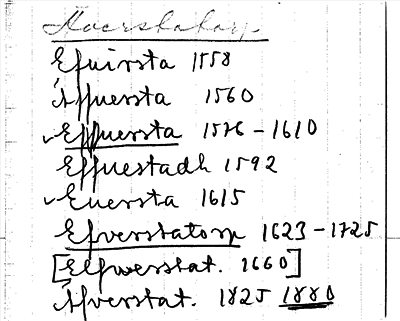 Efuirsta 1558
Åffuersta 1560
Effuersta 1576-1610
Effuestadh 1592
Euersta 1615
Efverstatorp 1623-1725
[Elfwerstat. 1660]
Åfverstat. 1825 1880